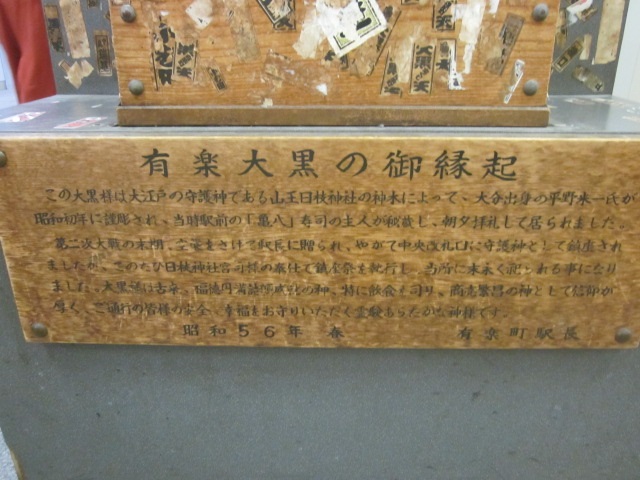 有楽大黒の御縁起
この大黒様は大江戸の守護神である山王日枝神社の神木によって、大分出身の平野朱一氏が
昭和初年に謹彫され、当時駅前の「亀八」寿司の主人が秘蔵し、朝夕拝礼して居られました。
第二次大戦の末期、空襲をさけて駅民に贈られ、やがて中央改札口に守護神として鎮座され
ましたが、このたび日枝神社宮司様の奉仕で鎮座祭を執行し、当所に末永く祀られる事になり
ました。大黒様は古来、福徳円満
の神、特に飲食を司り、商売繁昌の神として信仰が
厚く、ご通行の皆様の安全、幸福をお守りいただく霊験あらたかな神様です。
昭和56年 春 有楽町駅長